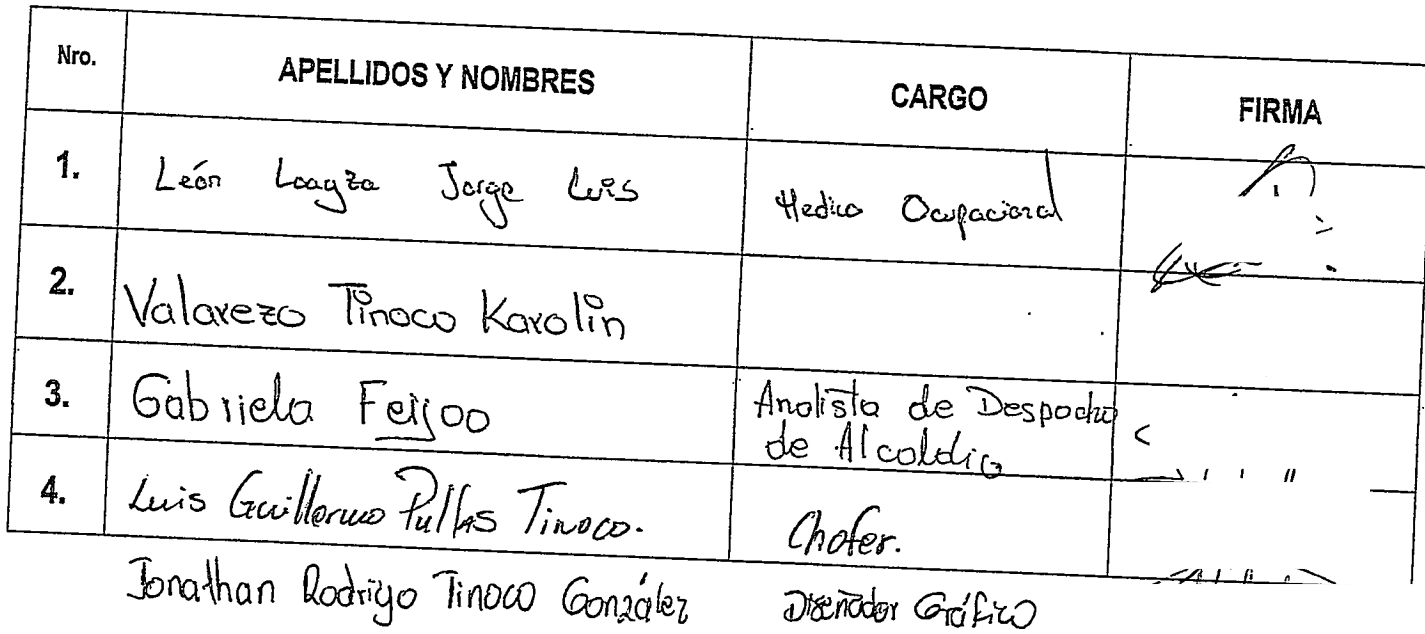 Nro. APELLIDOS Y NOMBRES CARGO FIRMA
1. León Loayza Jorge Luis Medico Ocupacional
2. Valarezo Tinoco Karolin
3. Gabriela Feijoo Analista de Despacho
de Alcaldia
4. Luis Guillermo Pullas Tinoco. Chofer.
Jonathan Rodrigo Tinoco González Diseñador Gráfico